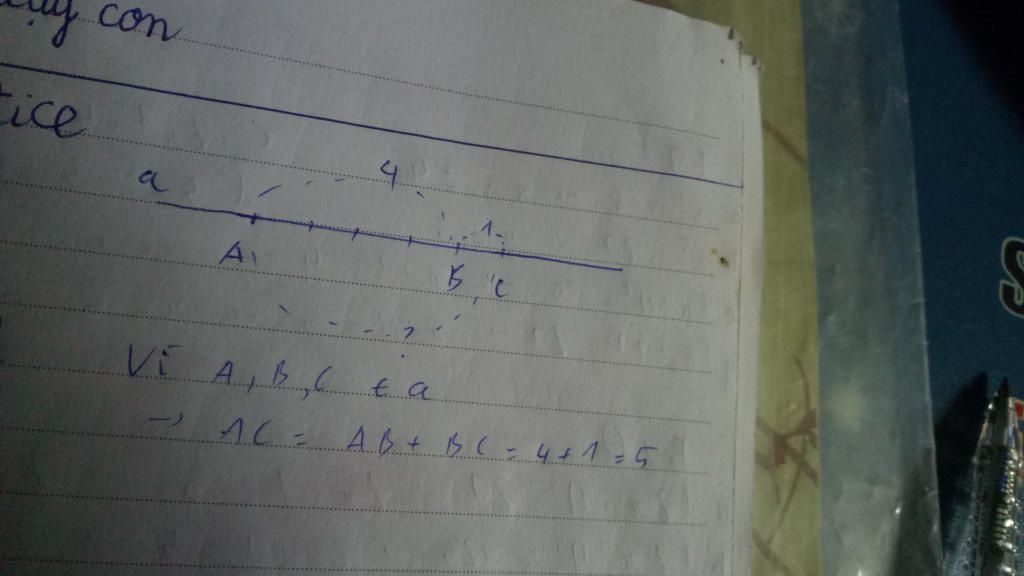 con
tice
4
a
1
A
B C
?
Vì A, B, C ∈ a
→ AC = AB + BC = 4 + 1 = 5
S